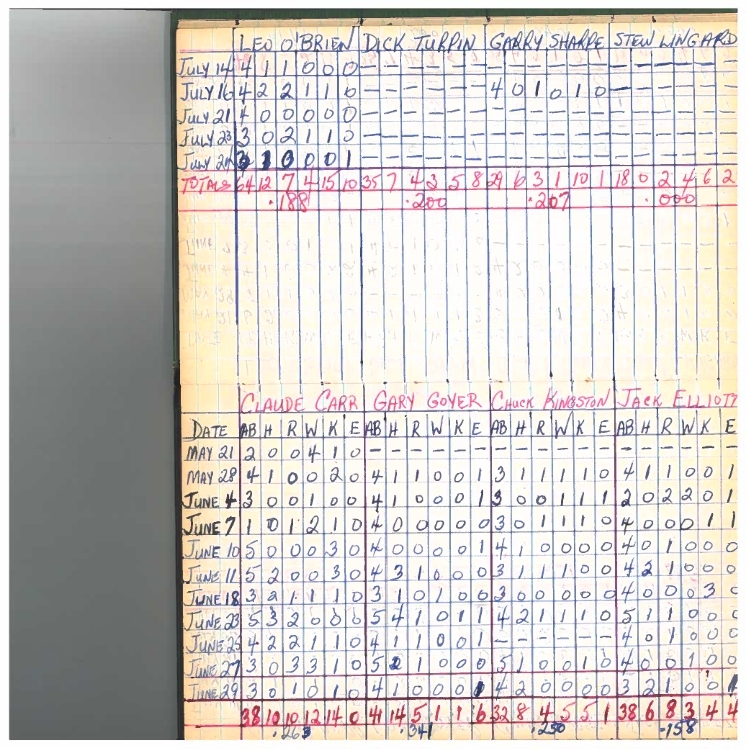 LEO O'BRIEN DICK TURPIN GARRY SHARPE STEW LINGARD
JULY 14 4 1 1 0 0 0 — — — — — — — — — — — — — — — — — —
JULY 16 4 2 2 1 1 0 — — — — — — 4 0 1 0 1 0 — — — — — —
JULY 21 4 0 0 0 0 0 — — — — — — — — — — — — — — — — — —
JULY 23 3 0 2 1 1 0 — — — — — — — — — — — — — — — — — —
JULY 3 1 0 0 0 1 — — — — — — — — — — — — — — — — — —
TOTALS 64 12 7 4 15 10 35 7 4 3 5 8 29 6 3 1 10 1 18 0 2 4 6 2
.188 .200 .207 .000
CLAUDE CARR GARY GOYER CHUCK KINGSTON JACK ELLIOTT
DATE AB H R W K E AB H R W K E AB H R W K E AB H R W K E
MAY 21 2 0 0 4 1 0 — — — — — — — — — — — — — — — — — —
MAY 28 4 1 0 0 2 0 4 1 1 0 0 1 3 1 1 1 1 0 4 1 1 0 0 1
JUNE 4 3 0 0 1 0 0 4 1 0 0 0 1 3 0 0 1 1 1 2 0 2 2 0 1
JUNE 7 1 0 1 2 1 0 4 0 0 0 0 0 3 0 1 1 1 0 4 0 0 0 1 1
JUNE 10 5 0 0 0 3 0 4 0 0 0 0 1 4 1 0 0 0 0 4 0 1 0 0 0
JUNE 11 5 2 0 0 3 0 4 3 1 0 0 0 3 1 1 1 0 0 4 2 1 0 0 0
JUNE 18 3 2 1 1 1 0 3 1 0 1 0 0 3 0 0 0 0 0 4 0 0 0 3 0
JUNE 23 5 3 2 0 0 0 5 4 1 0 1 1 4 2 1 1 1 0 5 1 1 0 0
JUNE 25 4 2 2 1 1 0 4 1 1 0 0 1 — — — — — — 4 0 1 0 0 0
JUNE 27 3 0 3 3 1 0 5 2 1 0 0 0 5 1 0 0 1 0 4 0 0 1 0 0
JUNE 29 3 0 1 0 1 0 4 1 0 0 0 1 4 2 0 0 0 0 3 2 1 0 0 1
38 10 10 12 14 0 41 14 5 1 1 6 32 8 4 5 5 1 38 6 8 3 4 4
.263 .341 .250 .158